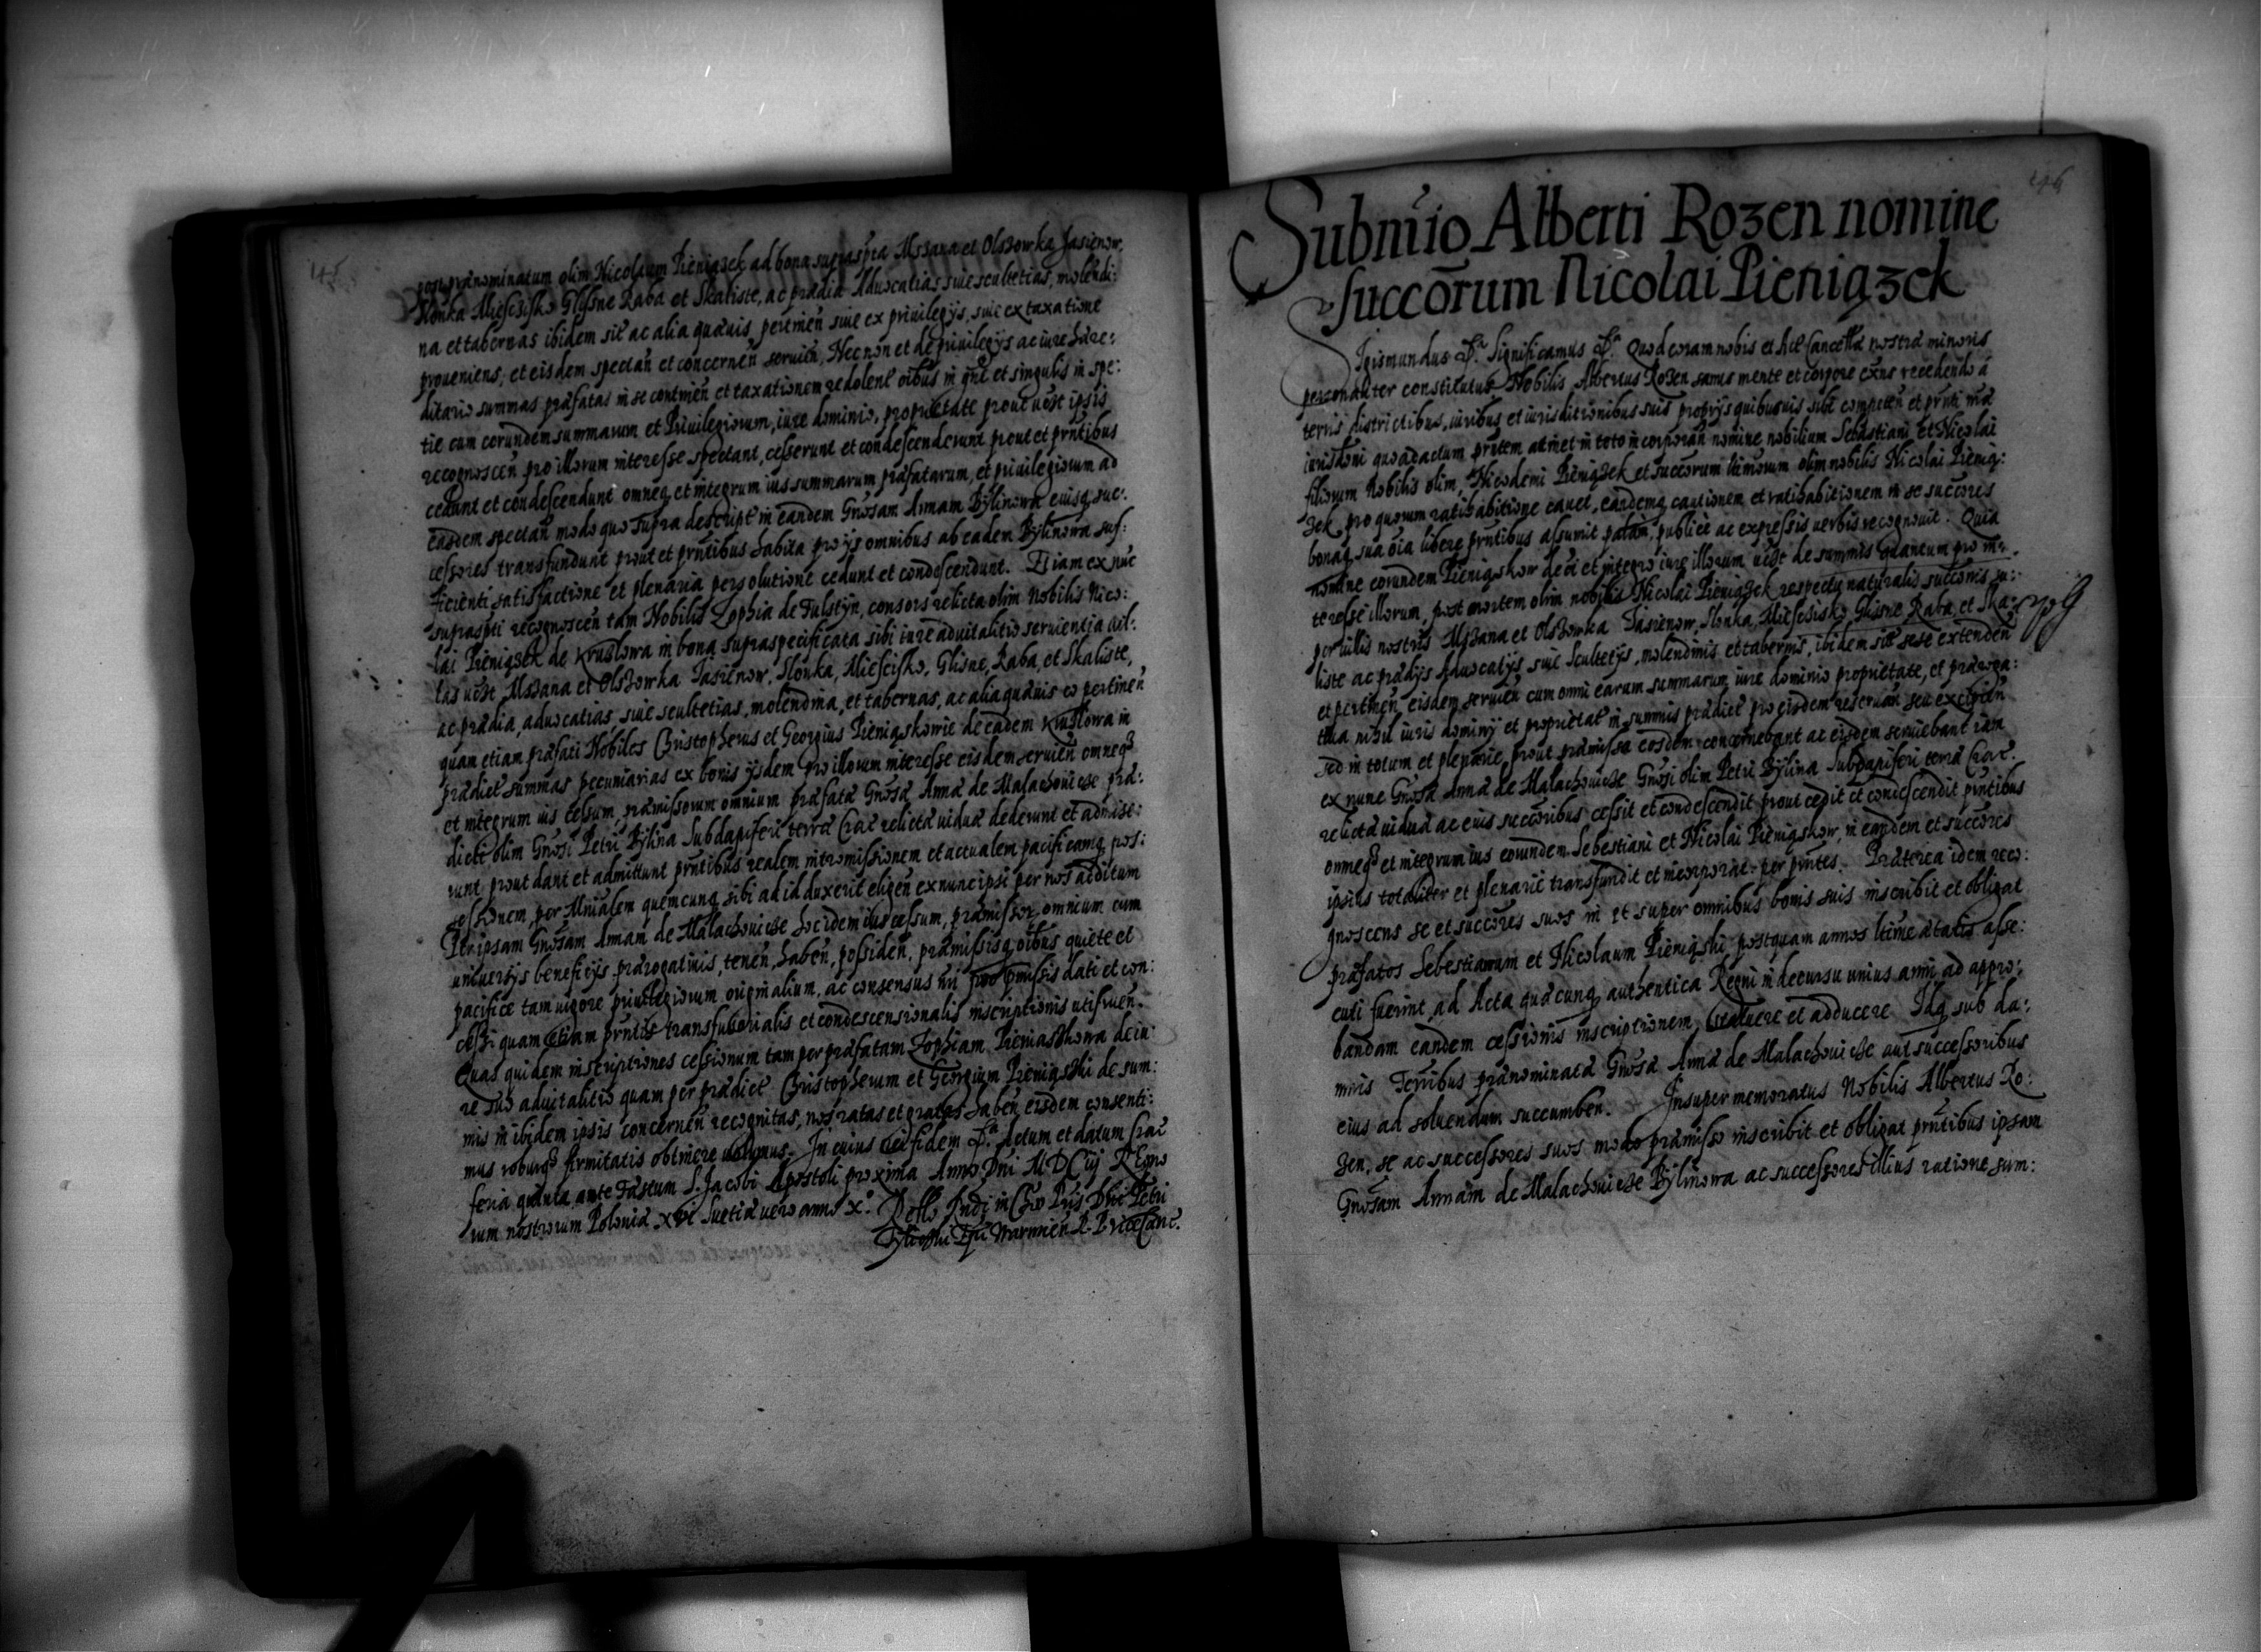 145
post prænominatum olim Nicolaum Pieniązek ad bona suprasp̃ta Mszana et Olszowka Jasienow,
Słonka Miescisko Glisne Raba et Skaliste, ac prædia Aduocatias siue scultetias, molendi:
na et tabernas ibidem sit̃ ac alia quæuis, pertineñ siue ex priuilegijs, siue ex taxatione
proueniens, et eisdem spectañ et concerneñ seruieñ, Necnon et de priuilegijs ac iure hære:
ditario summas præfatas in se contineñ et taxationem redoleñt oĩbus in gñe et singulis in spe:
tie cum eorundem summarum et Priuilegiorum, iure dominio, proprietate prout uĕst ipsis
recognosceñ pro illorum interesse spectant, cesserunt et condescenderunt prout et pñtibus
cedunt et condescendunt omneq̃ et integrum ius summarum præfatarum, et priuilegiorum ad
easdem spectañ modo quo supra descript̃ in eandem Gñosam Annam Bÿlinowa eiusq̃ suc:
cessores transfundunt prout et pñtibus habita pro ijs omnibus ab eadem Bÿlinowa suf:
ficienti satisfactione et plenaria persolutione cedunt et condescendunt. Etiam ex nũc
suprasp̃ti recognosceñ tam Nobilis Zophia de Fulstÿn, consors relicta olim Nobilis Nico:
lai Pieniązek de Kruslowa in bona supraspecificata sibi iure aduitalitio seruientia uil:
las uĕst, Mszana et Olszowka Jasienow, Słonka, Miescisko, Glisne, Raba, et Skaliste,
ac prædia, aduocatias, siue scultetias, molendina, et tabernas, ac alia quæuis eo pertineñ
quam etiam præfati Nobiles Christopherus et Georgius Pieniąskowie de eadem Kruslowa in
prædict̃ summas pecuniarias ex bonis ijsdem pro illorum interesse eisdem seruieñ omneq̃
et integrum ius cessum, præmissorum omnium præfatæ Gñosæ Annæ de Malachowicze præ:
dicti olim Gñosi Petri Bÿlina Subdapiferi terræ Crac̃ relictæ uiduæ dederunt et admise:
runt prout dant et admittunt pñtibus realem intromissionem et actualem pacificamq̃ pos:
sessionem, per Mñialem quemcunq̃ sibi ad id duxerit eligeñ ex nunc ipsi per nos additum
Per ipsam Gñosam Annam de Malachowicze hoc idem ius cessum, præmissor̃ omnium cum
uniuersijs beneficijs prærogatiuis, teneñ, habeñ, possideñ, præmissisq̃ oĩbus quiete et
pacifice tam uigore priuilegiorum originalium, ac consensus ñri pro pmissis dati et con:
cessi quam etiam pñtis transfusorialis et condescensionalis inscriptionis utifrueñ.
Quas quidem inscriptiones cessionum tam per præfatam Zophiam Pieniaszkowa de iu:
re suo aduitalitio quam per prædict̃ Christopherum et Georgium Pieniąszki de sum:
mis in ibidem ipsis concerneñ recognitas, nos ratas et gratas habeñ eisdem consenti:
mus roburq̃ firmitatis obtinere uolumus. In cuius rei fidem &ca. Actum et datum Crac̃
feria quinta ante Fæstum S. Jacobi Apostoli proxima Anno Dñi M D C iij Regno
rum nostrorum Poloniæ XVI Suetiæ uero anno X.
146
Submĩo Alberti Rozen nomine
succõrum Nicolai Pieniązek
Sigismundus &ca. Significamus &ca. Quod coram nobis et Act̃ Cancellæ nostræ minoris
personaliter constitutus Nobilis Albertus Rozen sanus mente et corpore exñs recedendo à
terris districtibus, iuribus et iurisditionibus suis proprijs quibusuis sibi competeñ et pñti
iurisdõni quo ad actum pñtem attinet in toto incorporañ nomine nobilium Sebastiani et Nicolai
filiorum Nobilis olim, Nicodemi Pieniązek et succõrum ltimorum olim nobilis Nicolai Pienią:
zek pro quorum ratihabitione cauet, eandemq̃ cautionem et ratihabitionem in se succõres
bonaq̃ sua oĩa libere pñtibus assumit palam, publicè ac expressis uerbis recognouit. Quia
nomine eorundem Pieniąskow de oĩ et integro iure illorum uĕst de summis quantum pro in:
teresse illorum, post mortem olim nobilis Nicolai Pieniązek respectu naturalis succõnis su:
per uillis nostris Mszana et Olszowka Jasienow, Słonka, Miescisko, Glisne, Raba, et Ska:
liste ac prædijs Aduocatijs siue Scultetijs, molendinis et tabernis, ibidem sit̃ sese extendeñ
et pertineñ eisdem seruieñ cum omni earum summarum iure dominio proprietate, et præroga:
tiua nihil iuris dominÿ et proprietat̃ in summis prædict̃ pro eisdem reseruañ seu excipieñ
sed in totum et plenarie, prout præmissa eosdem concernebant ac eisdem seruiebant iam
ex nunc Gñosæ Annæ de Malachowicze Gñosi olim Petri Bÿlina Subdapiferi terræ Crac.
relictæ uiduæ ac eius succõribus cessit et condescendit prout cedit et condescendit pñtibus
omneq̃ et integrum ius eorundem Sebestiani et Nicolai Pieniąskow, in eandem et succõres
ipsius totaliter et plenariè transfundit et incorporat per pñtes. Præterea idem reco:
gnoscens se et succõres suos in et super omnibus bonis suis inscribit et obligat
præfatos Sebestianum et Nicolaum Pieniąski postquam annos ltimæ ætatis asse:
cuti fuerint, ad Acta quæcunq̃ authentica Regni in decursu unius anni ad appro:
bandam eandem cessionis inscriptionem, statuere et adducere Idq̃ sub da:
mnis terribus prænominatæ Gñosæ Annæ de Malachowicze aut successoribus
eius ad soluendum succumbeñ. Insuper memoratus Nobilis Albertus Ro:
zen, se ac successores suos modo præmisso inscribit et obligat pñtibus ipsam
Gñosam Annam de Malachowicze Bÿlinowa ac successores illius ratione sum: